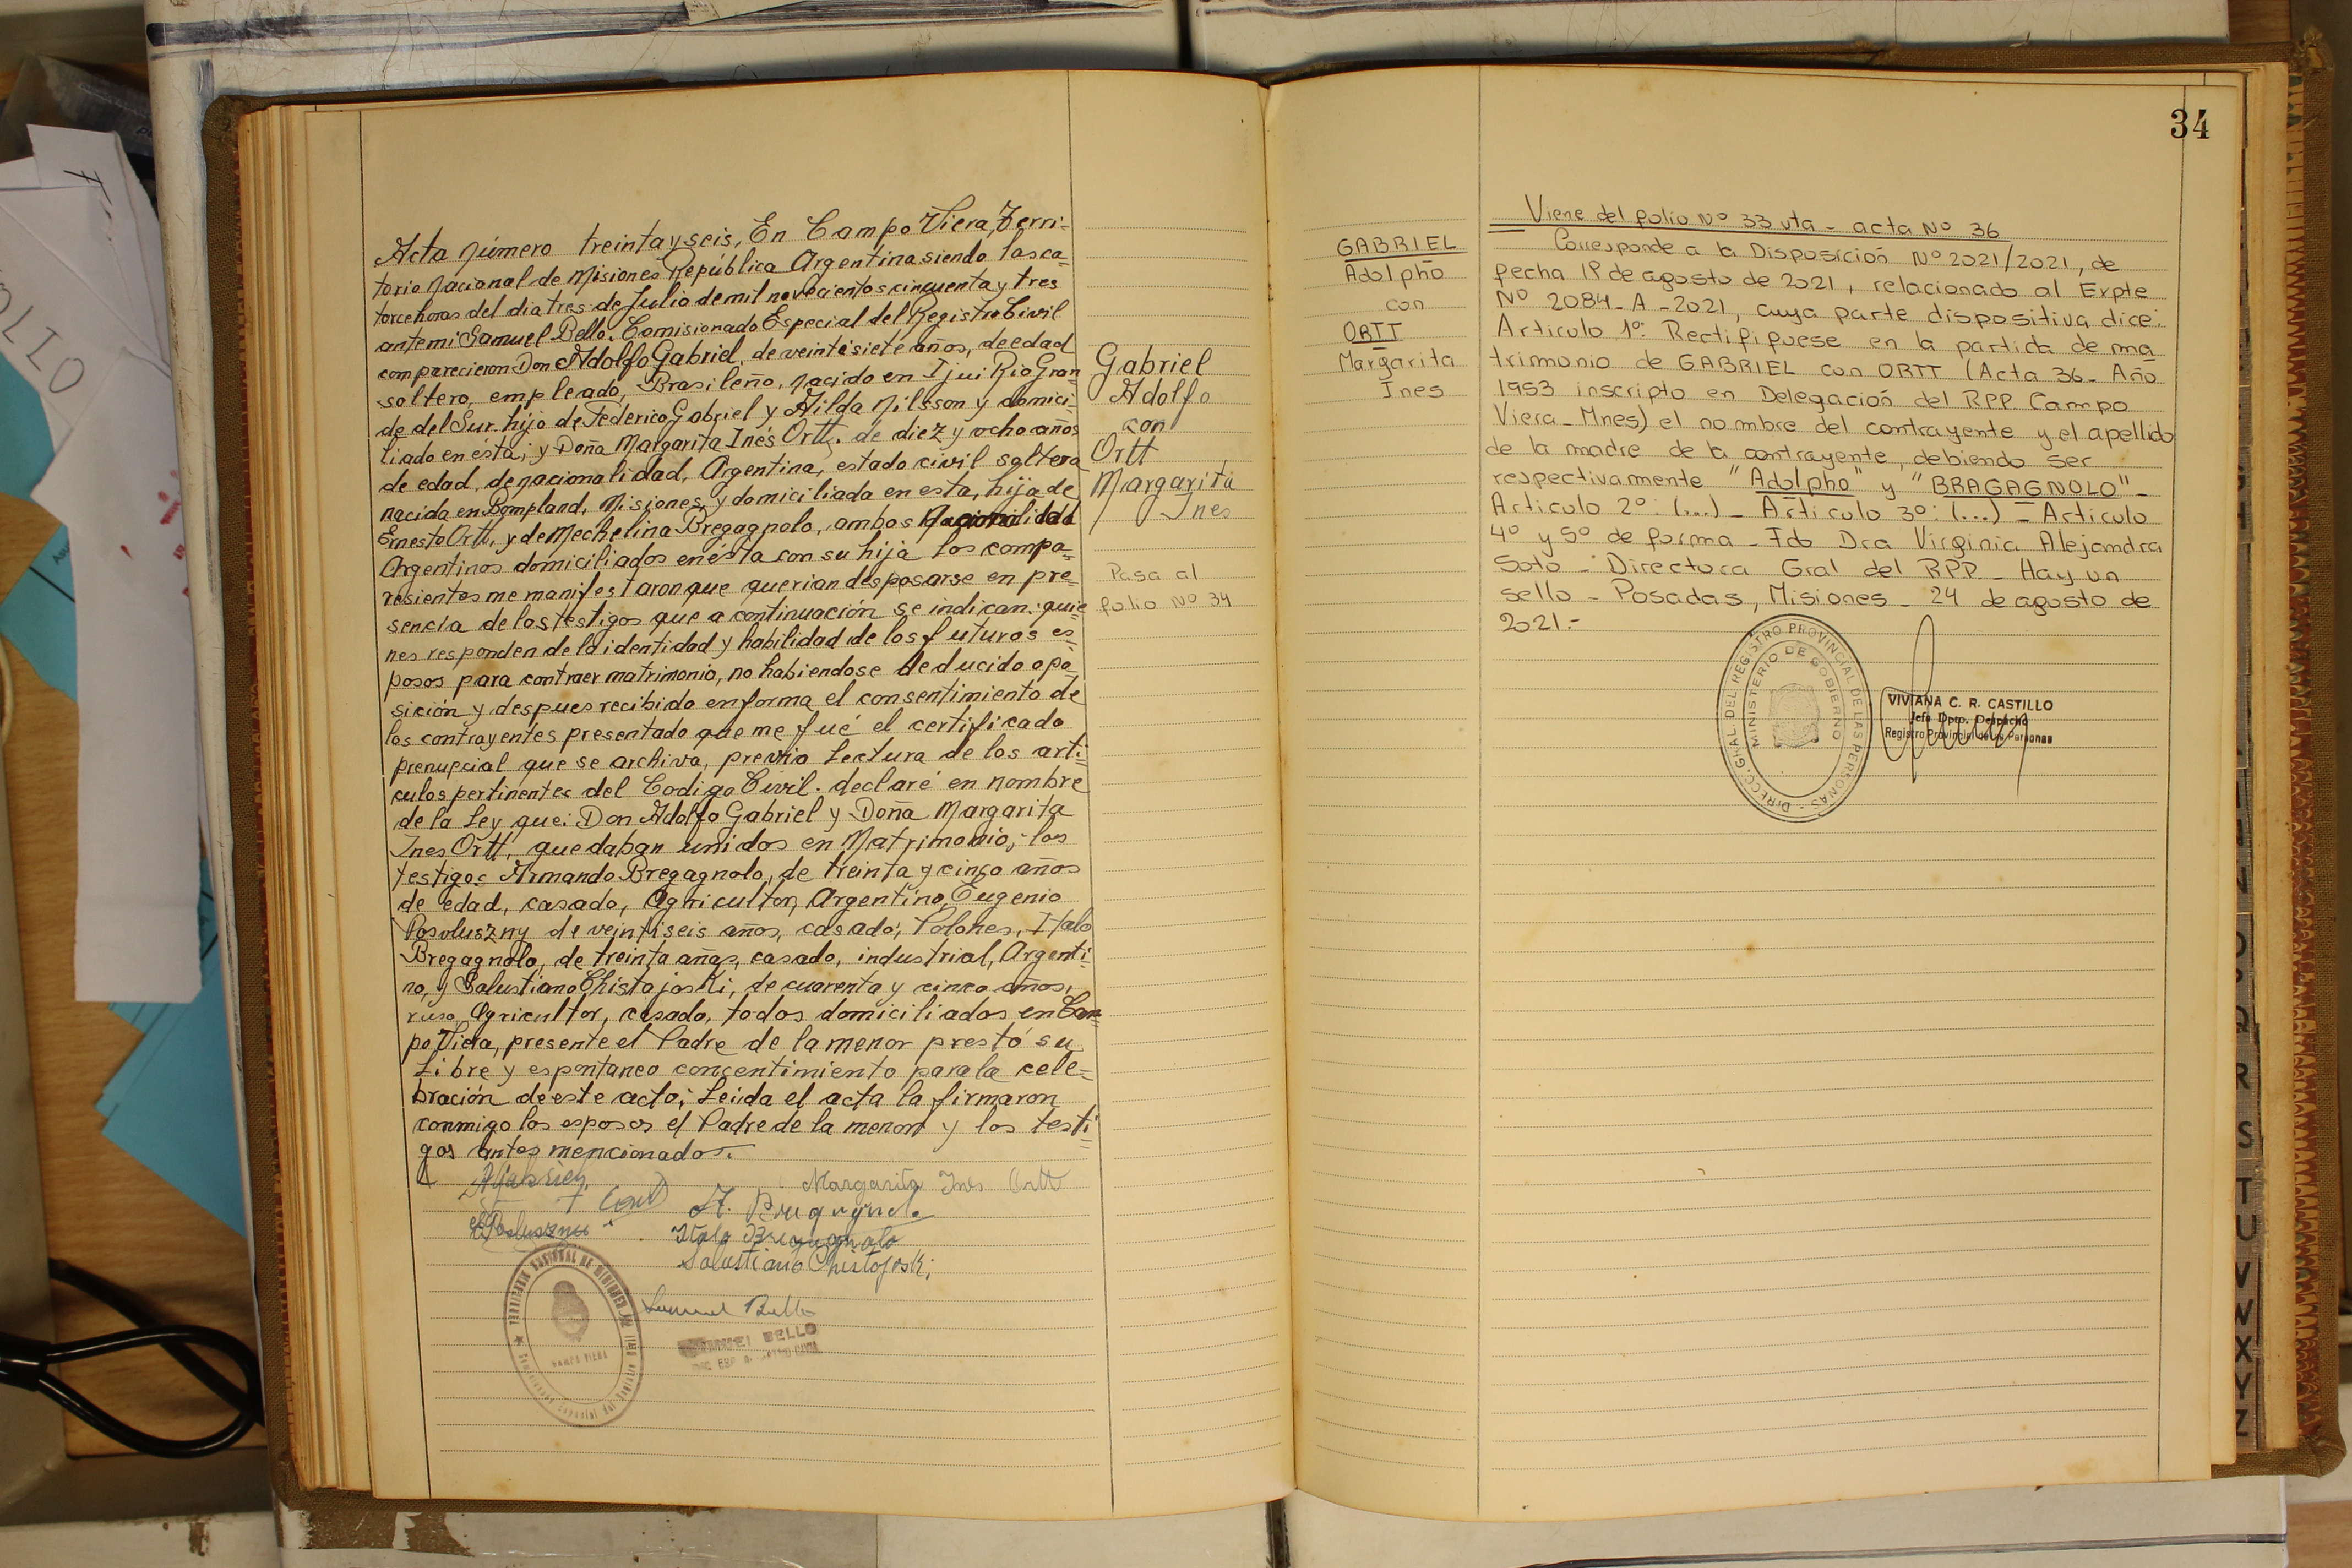 Acta Número treinta y seis, En Campo Viera, Terri-
torio Nacional de Misiones República Argentina siendo las ca-
torce horas del dia tres de Julio de mil novecientos cincuenta y tres
ante mi Samuel Bello. Comisionado Especial del Registro Civil
comparecieron Don Adolfo Gabriel, de veintisiete años, de edad
soltero, empleado, Brasileño, nacido en Ijui Rio Gran-
de del Sur. hijo de Federico Gabriel y Hilda Nilsson y domici-
liado en ésta; y Doña Margarita Inés Ortt. de diez y ocho años
de edad, de nacionalidad, Argentina, estado civil soltera
nacida en Bompland, Misiones, y domiciliada en esta, hija de
Ernesto Ortt, y de Mechelina Bregagnolo, ambos nacionalidad
Argentinos domiciliados en ésta con su hija los compa-
resientes me manifestaron que querian desposarse en pre-
sencia de los testigos que a continuación se indican: quie-
nes responden de la identidad y habilidad de los futuros es-
posos para contraer matrimonio, no habiendose deducido opo-
sición y despues recibido en forma el consentimiento de
los contrayentés presentado que me fué el certificado
prenupcial que se archiva, previa lectura de los arti-
culos pertinentes del Codigo Civil. declaré en nombre
de la Ley que: Don Adolfo Gabriel y Doña Margarita
Ines Ortt, quedaban unidos en Matrimonio; los
testigos Armando Bregagnolo, de treinta y cinco años
de edad, casado, Agricultor, Argentino, Eugenio
Posvluszny de veintiseis años, casado, Polones, Italo
Bregagnolo, de treinta años, casado, industrial, Argenti-
no, y Salustiano Christojoski, de cuarenta y cinco años,
ruso, Agricultor, casado, todos domiciliados en Cam-
po Viera, presente el Padre de la menor prestó su
Libre y espontaneo concentimiento para la cele-
bración de este acto; Leida el acta la firmaron
conmigo los esposos el Padre de la menor y los testi-
gos antes mencionados.
Margarita Inés Ortt
Italo Bregagnolo
Salustiano Christojoski
Samuel Bello
CAMPO VIERA
BELLO
Gabriel
Adolfo
con
Ortt
Margarita
Ines
Pasa al
folio Nº 34
34
GABRIEL
Adolpho
con
ORTT
Margarita
Ines
Viene del folio Nº 33 vta - acta Nº 36
Corresponde a la Disposición Nº 2021/2021, de
fecha 1º de agosto de 2021, relacionado al Expte
Nº 2084-A-2021, cuya parte dispositiva dice:
Articulo 1º: Rectifiquese en la partida de ma
trimonio de GABRIEL con ORTT (Acta 36- Año
1953 inscripto en Delegación del RPP Campo
Viera - Mnes) el nombre del contrayente y el apellido
de la madre de la contrayente, debiendo ser
respectivamente "Adolpho" y "BRAGAGNOLO"-
Articulo 2º: (...) - Articulo 3º: (...) - Articulo
4º y 5º de forma - Fdo Dra Virginia Alejandra
Soto - Directora Gral del RPP - Hay un
sello - Posadas, Misiones - 24 de agosto de
2021.-
DIRECC. GRAL. DEL REGISTRO PROVINCIAL DE LAS PERSONAS -
MINISTERIO DE GOBIERNO
VIVIANA C. R. CASTILLO
Jefe Dpto. Despacho
Registro Provincial de las Personas